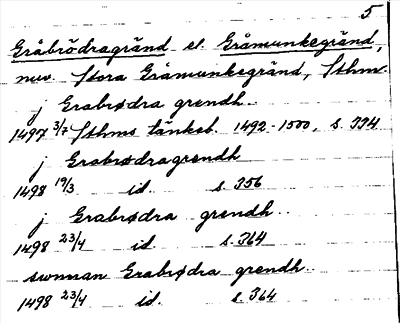 5
Gråbrödragränd el. Gråmunkegränd,
nuv. Stora Gråmunkegränd, Sthm.
j Grabrødra grendh.
1497 3/7 Sthms tänkeb. 1492-1500, s. 334
j Grabrødragrendh
1498 19/3 id. s. 356
j Grabrødra grendh..
1498 23/4 id. s. 364
swnnan Grabrødra grendh..
1498 23/4 id. s. 364